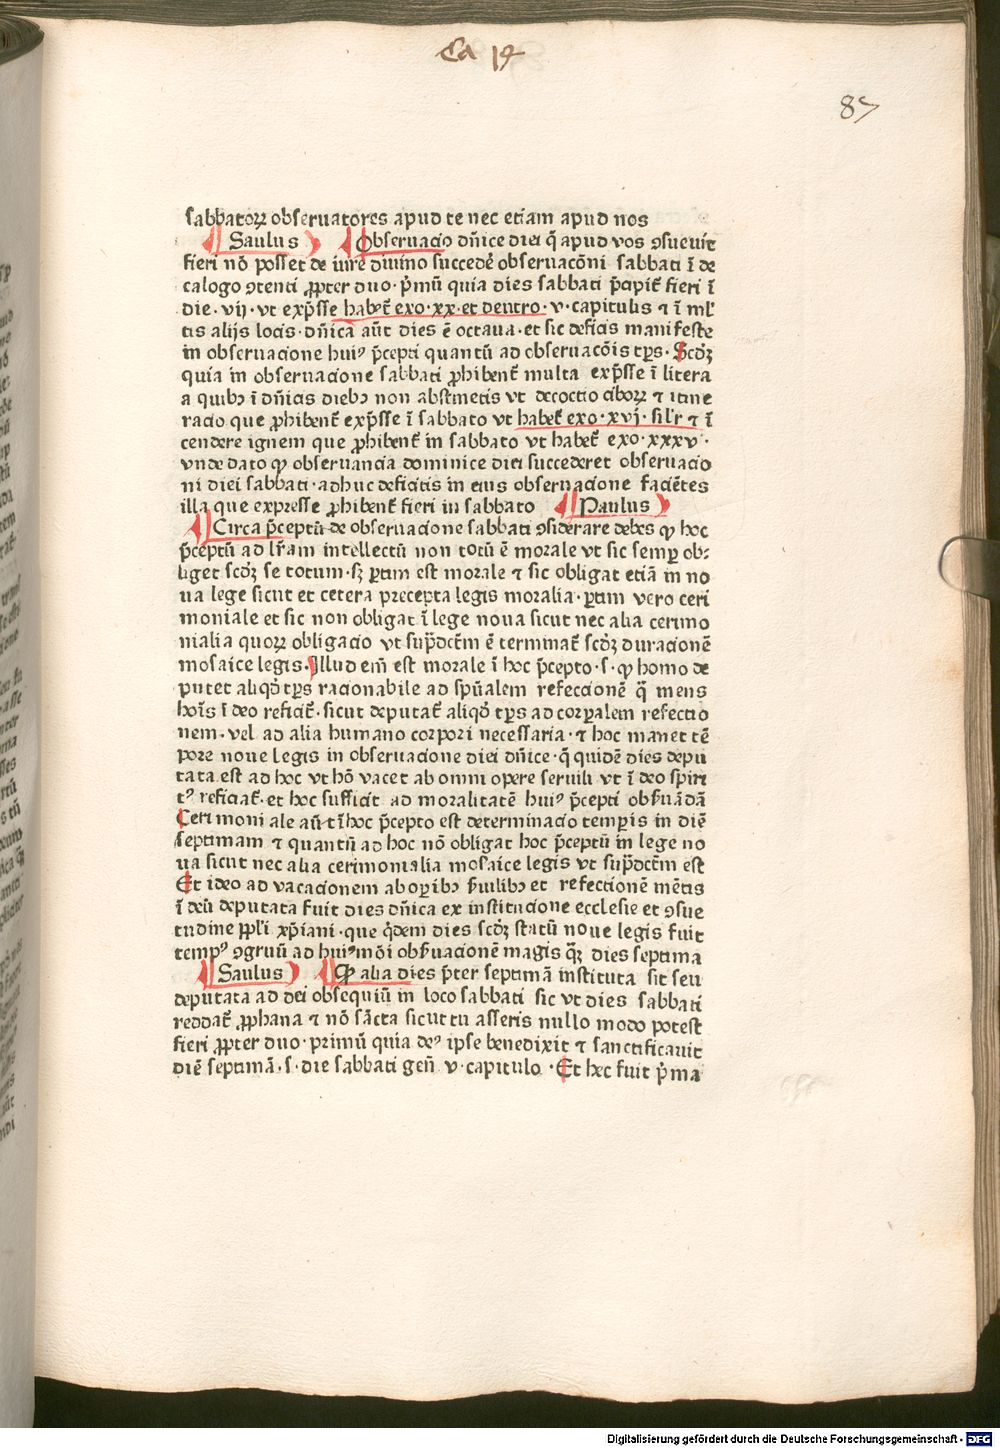 Ca 14
87
sabbatoꝝ obseruatores apud te nec etiam apud nos
Saulus Obseruacio dñice diei q̄ apud vos ꝯsueuit
fieri nō posset de iure diuino succedē obseruacōni sabbati ī de
calogo ꝯtenti ꝓpter duo · p̄mū quia dies sabbati p̄cipit̄ fieri ī
die · vij · vt exp̄sse habet̄ exo · xx · et deutro · v · capitulis ⁊ ī ml'
tis alijs locis · dñica aūt dies ē octaua · et sic deficis manifeste
in obseruacione huiꝰ p̄cepti quantū ad obseruacōis tp̄s · Scd̄ꝫ
quia in obseruacione sabbati ꝓhibent̄ multa exp̄sse ī litera
a quibꝫ ī dñicis diebꝫ non abstinetis vt decoctio ciboꝝ ⁊ itine
racio que ꝓhibent̄ exp̄sse ī sabbato vt habet̄ exo · xvj · sil'r ⁊ ī
cendere ignem que ꝓhibent̄ in sabbato vt habet̄ exo · xxxv ·
vnde dato ꝙ obseruancia dominice diei succederet obseruacio
ni diei sabbati · adhuc deficitis in eius obseruacione faciētes
illa que expresse ꝓhibent̄ fieri in sabbato Paulus
Circa p̄ceptū de obseruacione sabbati ꝯsiderare debes ꝙ hoc
p̄ceptū ad lr̄am intellectū non totū ē morale vt sic semꝑ ob⸗
liget scd̄ꝫ se totum · sꝫ ꝑtim est morale ⁊ sic obligat etiā in no
ua lege sicut et cetera precepta legis moralia · ꝑtim vero ceri
moniale et sic non obligat ī lege noua sicut nec alia cerimo
nialia quoꝝ obligacio vt sup̄dct̄m ē terminat̄ scd̄ꝫ duracionē
mosaice legis · Illud em̄ est morale ī hoc p̄cepto · s · ꝙ homo de
putet aliqd̄ tp̄s racionabile ad sp̄ualem refeccionē q̄ mens
hoīs ī deo reficit̄ · sicut deputat̄ aliqd̄ tp̄s ad corꝑalem refectio
nem · vel ad alia humano corpori necessaria · ⁊ hoc manet tē
pore noue legis in obseruacione diei dñice · q̄ quidē dies depu
tata est ad hoc vt hō vacet ab omni opere seruili vt ī deo spiri
tꝰ reficiat̄ · et hoc sufficit ad moralitatē huiꝰ p̄cepti obẜuādā
Cerimoniale aūt ī hoc p̄cepto est determinacio temꝑis in diē
septimam ⁊ quantū ad hoc nō obligat hoc p̄ceptū in lege no
ua sicut nec alia cerimonialia mosaice legis vt sup̄dct̄m est
Et ideo ad vacacionem ab oꝑibꝫ ẜuilibꝫ et refectionē mētis
ī deū deputata fuit dies dñica ex institucione ecclesie et ꝯsue
tudine ppl'i xp̄iani · que q̄dem dies scd̄ꝫ statū noue legis fuit
tempꝰ ꝯgruū ad huiꝰmōi obẜuacionē magis q̄ꝫ dies septima
Saulus Ꝙ alia dies p̄ter septimā instituta sit seu
deputata ad dei obsequiū in loco sabbati sic vt dies sabbati
reddat̄ ꝓphana ⁊ nō sācta sicut tu asseris nullo modo potest
fieri ꝓpter duo · primū quia deꝰ ipse benedixit ⁊ sanctificauit
diē septimā · s · die sabbati geñ v · capitulo · Et hec fuit p̄ma
Digitalisierung gefördert durch die Deutsche Forschungsgemeinschaft - DFG